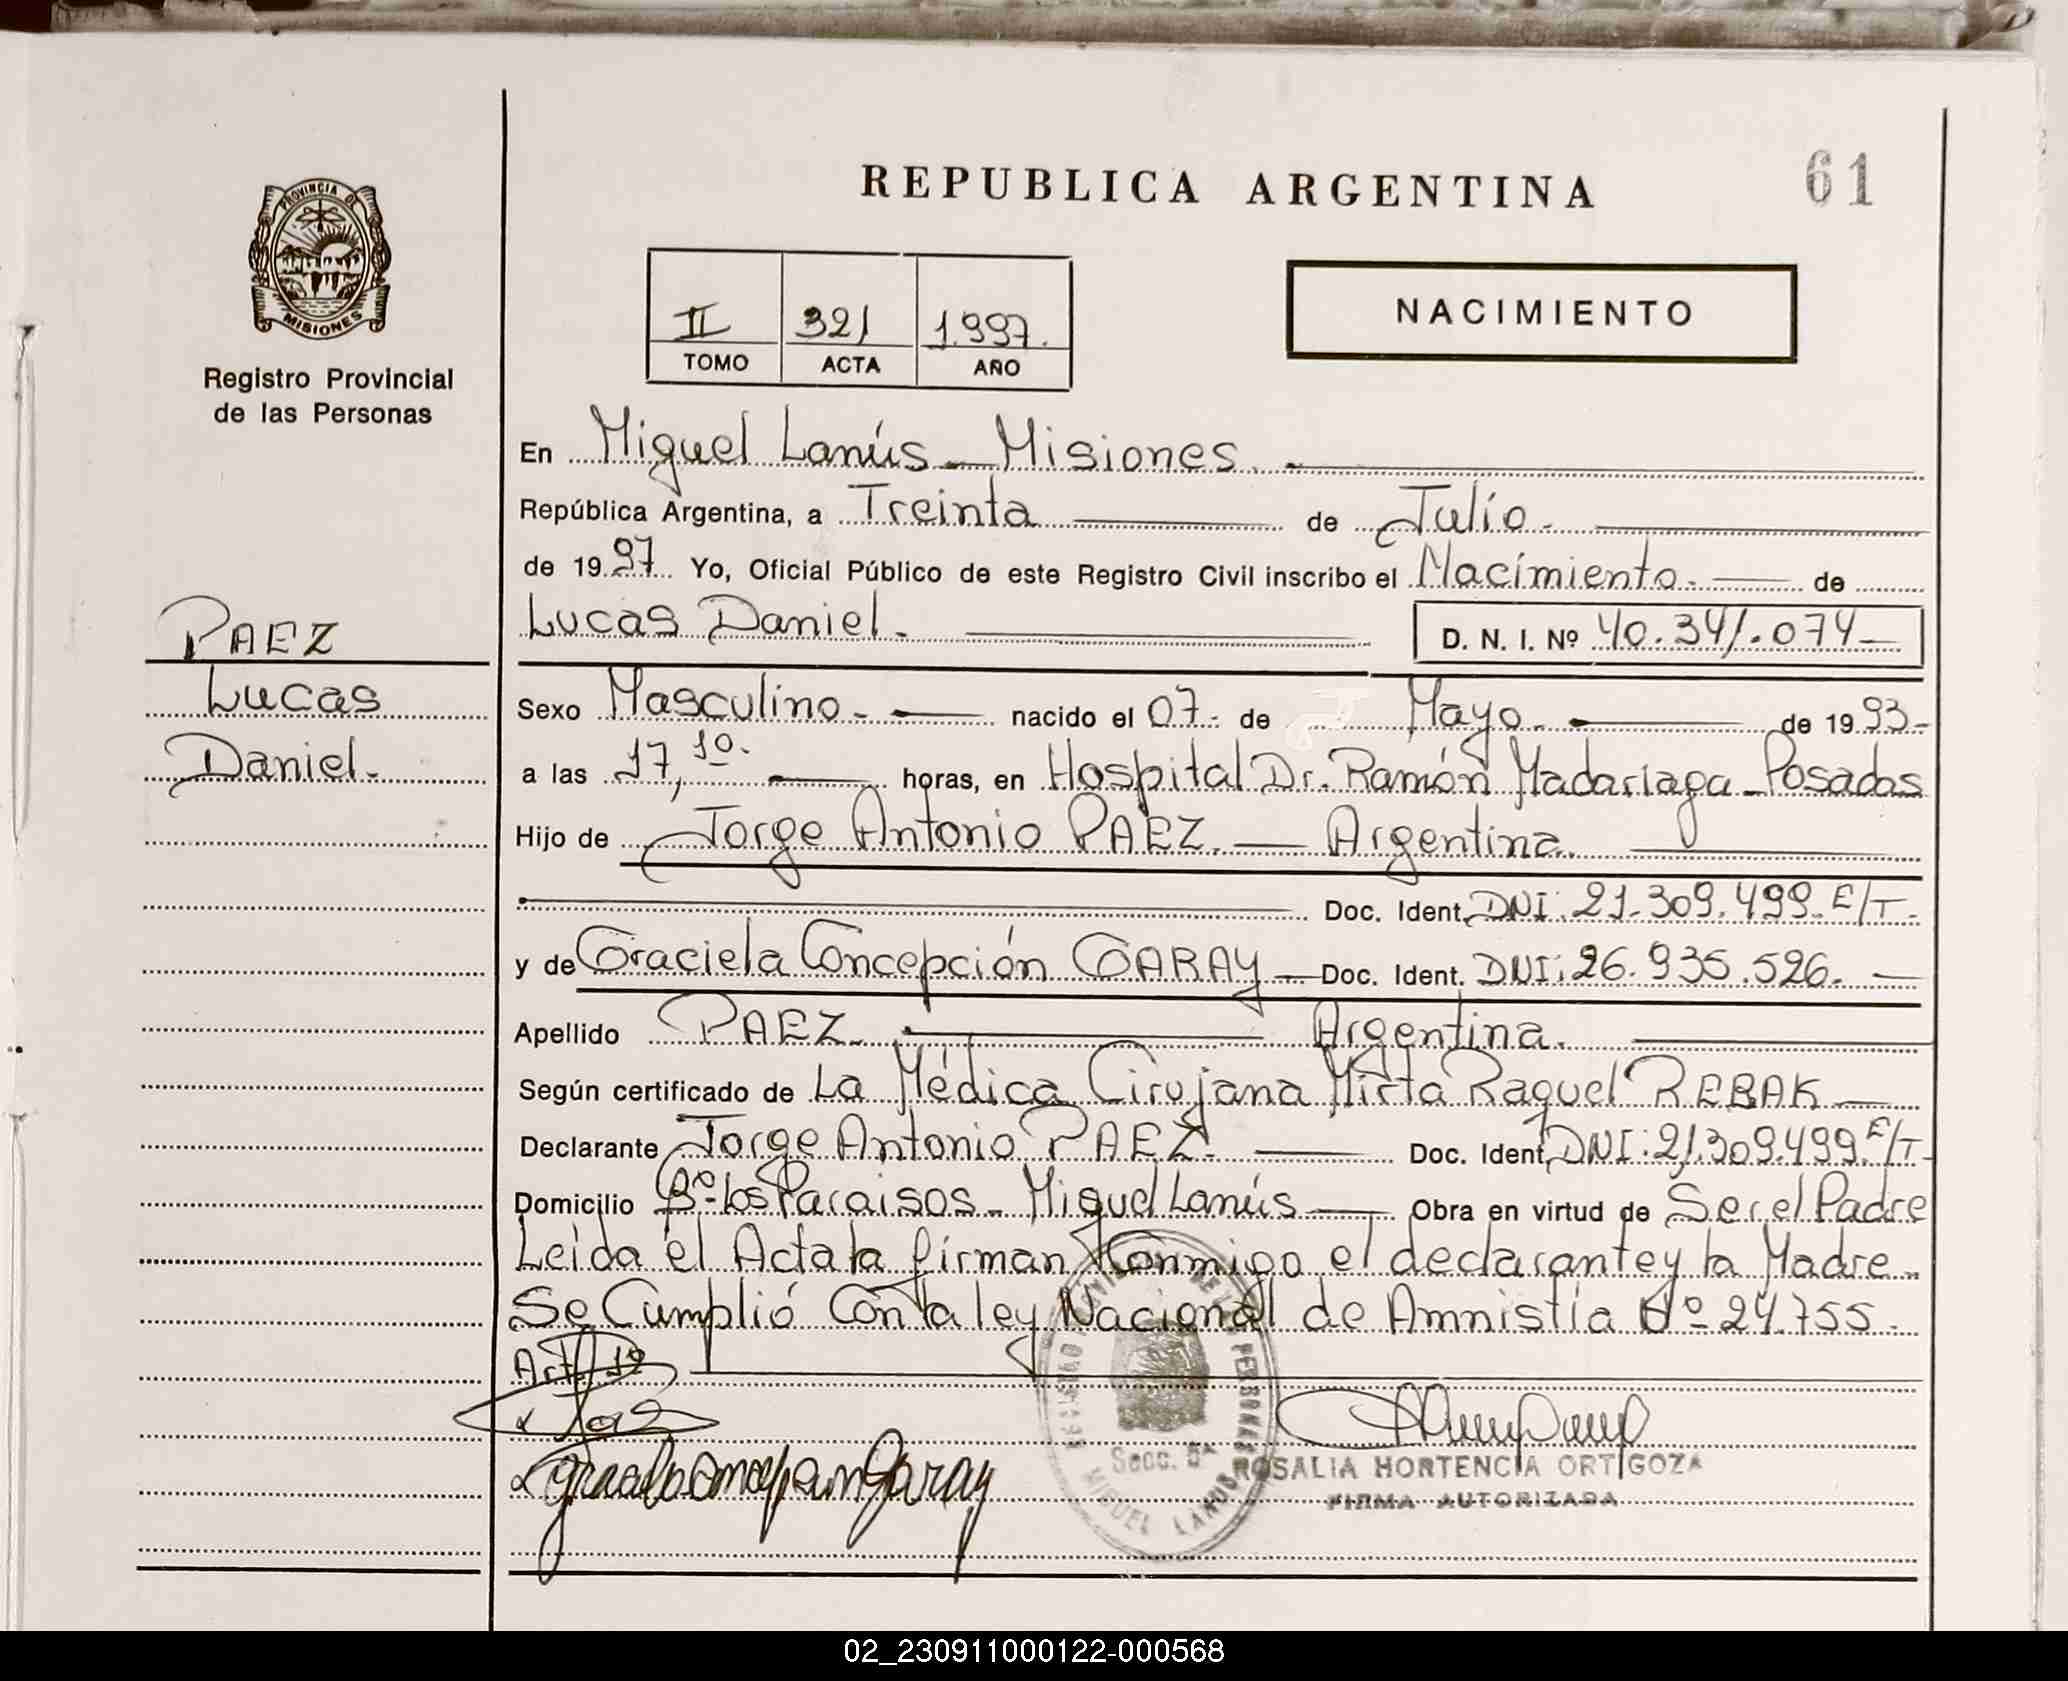 REPUBLICA ARGENTINA
61
PROVINCIA DE
MISIONES
Registro Provincial
de las Personas
II 321 1.997.
TOMO ACTA AÑO
NACIMIENTO
En Miguel Lanús - Misiones.
República Argentina, a Treinta de Julio.
de 1997 Yo, Oficial Público de este Registro Civil inscribo el Nacimiento. de
Lucas Daniel. D. N. I. Nº 40.341.074
PAEZ
Lucas
Daniel.
Sexo Masculino. nacido el 07. de Mayo. de 1993.
a las 17,10. horas, en Hospital Dr. Ramón Madariaga - Posadas
Hijo de Jorge Antonio PAEZ. Argentina.
Doc. Ident. DNI: 21.309.499. E/T.
y de Graciela Concepción GARAY Doc. Ident. DNI: 26.935.526.
Apellido PAEZ. Argentina.
Según certificado de La Médica Cirujana Mirta Raquel REBAK
Declarante Jorge Antonio PAEZ. Doc. Ident. DNI: 21.309.499. E/T.
Domicilio Bº Los Paraisos - Miguel Lanús Obra en virtud de Ser el Padre
Leida el Acta la firman Conmigo el declarante y la Madre
Se Cumplió Con la ley Nacional de Amnistía Nº 24.755.
Art. 1º
Graciela Concepcion Garay
Secc. 6ª
MIGUEL LANUS
ROSALIA HORTENCIA ORTIGOZA
FIRMA AUTORIZADA
02_230911000122-000568